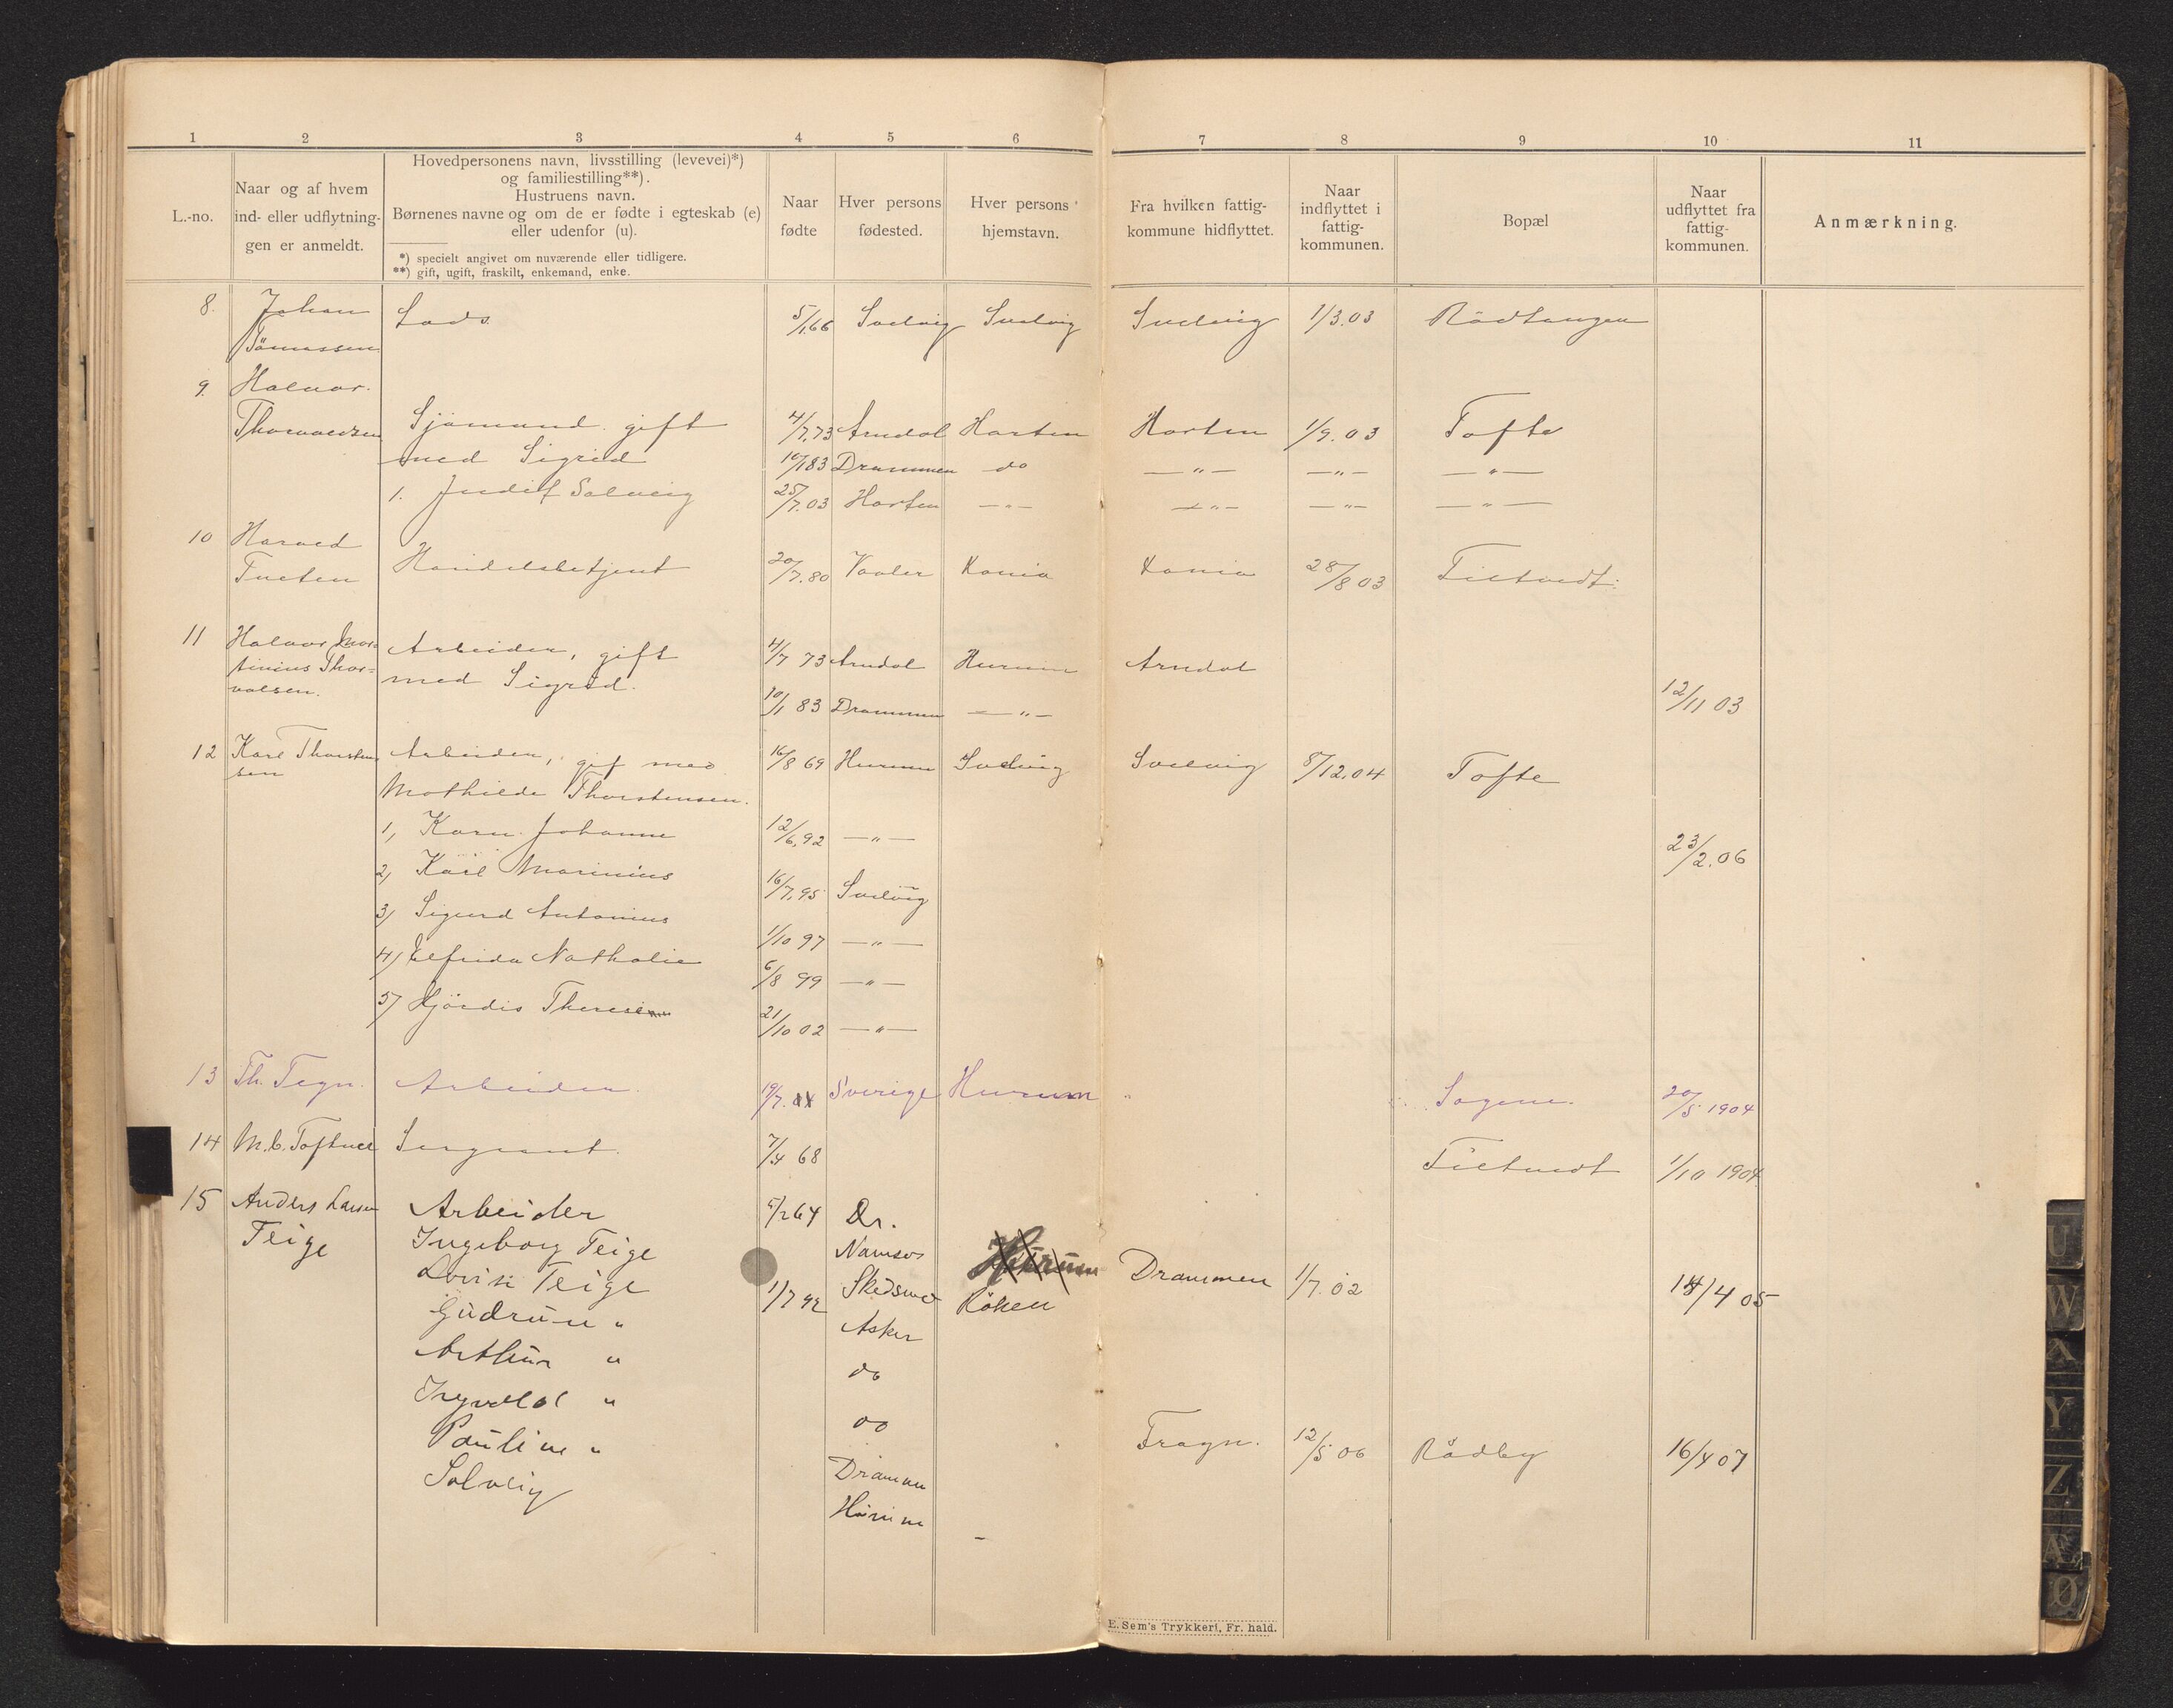 1 2 3 4 5 6 7 8 9 10 11
L.-no.
Naar og af hvem
ind- eller udflytnin-
gen er anmeldt.
Hovedpersonens navn, livsstilling (levevei)*)
og familiestilling**).
Hustruens navn.
Børnenes navne og om de er fødte i egteskab (e)
eller udenfor (u).
*) specielt angivet om nuværende eller tidligere.
**) gift, ugift, fraskilt, enkemand, enke.
Naar
fødte
Hver persons
fødested.
Hver persons
hjemstavn.
Fra hvilken fattig-
kommune hidflyttet.
Naar
indflyttet i
fattig-
kommunen.
Bopæl
Naar
udflyttet fra
fattig-
kommunen.
Anmærkning.
8. Johan Lods 5/1.66 Svelvig Svelvig Svelvig 1/3.03 Rödtangen
9. Halvor
Thorvaldsen Sjömand gift 4/7.73 Arndal Horten Horten 1/9.03 Tofte
med Sigrid 10/1 83 Drammen do — „ — — „ — — „ —
1. Judit Solveig 25/7.03 Horten — „ — — „ — — „ — — „ —
10 Harald
Tveten Handelsbetjent 20/7.80 Vaaler Xania Xania 28/8 03 Filtvedt.
11 Halvor Mar-
tinius Thor-
valsen. Arbeider, gift 4/7 73 Arndal Hurum Arndal
med Sigrid. 10/1 83 Drammen — „ — 12/11 03
12 Karl Thorsten
sen Arbeider, gif med 16/8 69 Hurum Svelvig Svelvig 8/12.04 Tofte
Mathilde Thorstensen.
1, Karn Johanne 12/6.92 — „ — 23/2.06
2, Karl Marinius 16/7.95 Svelvig
3, Sigurd Antonius 1/10 97 — „ —
4, Elfrida Nathalie 6/8 99 — „ —
5, Hjördis Therese 21/10 02 — „ —
13 Th. Tegn. Arbeider. 19/7. Sverige Hurum Sagene. 20/5 1904
14 M. C. Toftner Sergeant. 7/4 68 Filtvedt 1/10 1904
15 Anders Larsen Arbeider 5/2 64 Dr.
Teige Ingeborg Teige Namsos Hurum Drammen 1/7.02
Lovise Teige 1/7 92 Skedsmo Röken 14/4 05
Gudrun „ Asker
Arthur „ do
Ingvald „ do
Pauline „ Drammen Frogn. 12/5 06 Rödby 16/4 07
Solveig Hurum –
E. Sem's Trykkeri, Fr. hald.
U
W
X
Y
Z
Æ
Ø